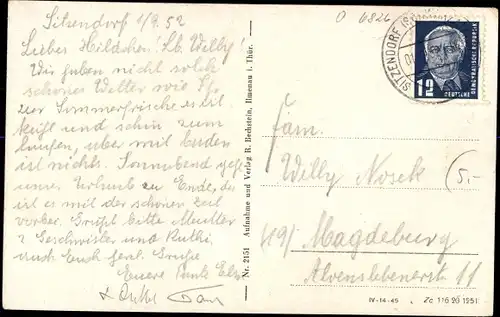 Sitzendorf 1/9. 52
Lieber Hildchen! Lb. Willy!
Wir haben nicht solch
schönes Wetter wie Ihr
zur Sommerfrische es ist
kühl und schön zum
laufen, aber mit baden
ist nichts. Sonnabend geht
unser Urlaub zu Ende, da
ist es mit der schönen Zeit
vorbei. Grüßt bitte Mutter
Geschwister und
und Euch herzl. Grüße
Eure Tante
Onkel
Nr. 2151 Aufnahme und Verlag R. Bechstein, Ilmenau i. Thür.
0 6826
SITZENDORF
12
DEUTSCHE
DEMOKRATISCHE REPUBLIK
Fam.
Willy Nosek
5,-
Magdeburg
Alvenslebenerstr. 11
IV-14-45 Zc 116 90 1951